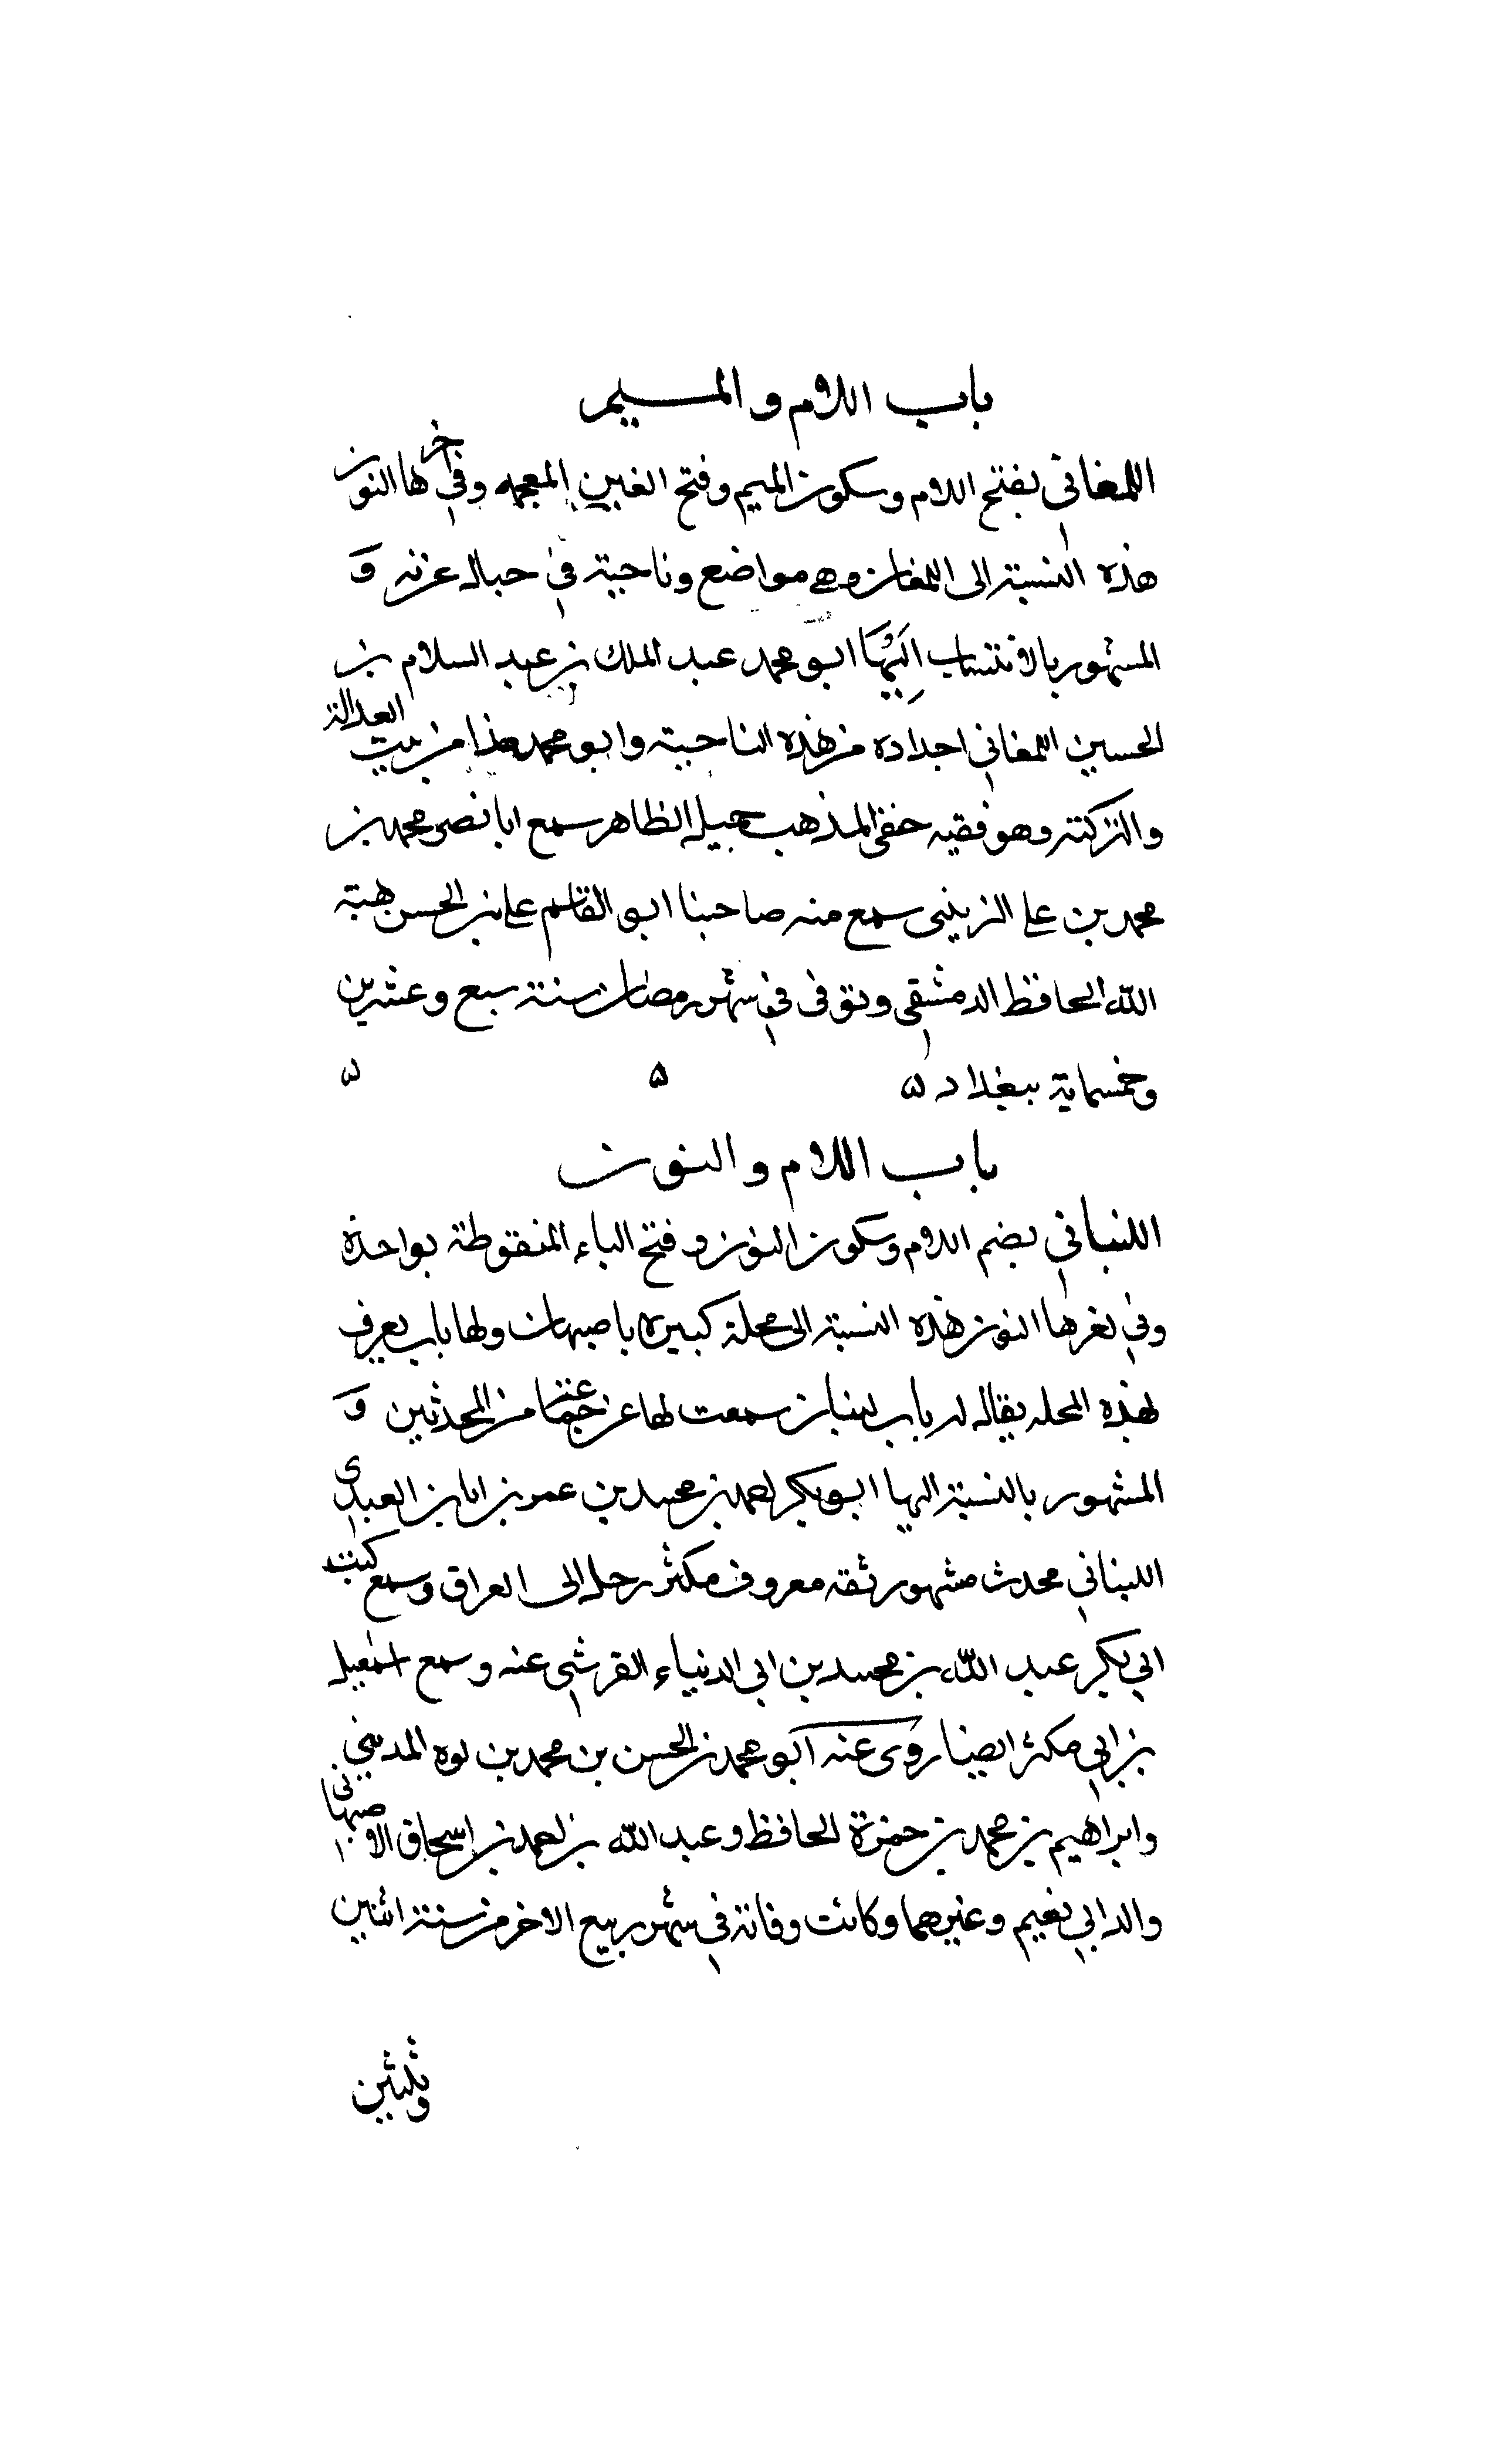 باب اللام و الميم
اللمغاني بفتح اللام وسكون الميم وفتح الغين المعجمه وفي اخرها النون
هذه النسبة الى اللمغان وهي مواضع وناحية في جبال غزنه و
المشهور بالانتساب اليها ابو محمد عبد الملك بن عبد السلام بن
الحسين اللمغاني اجداده من هذه الناحية وابو محمد هذا من بيت العدالة
والتزكية وهو فقيه حنفي المذهب جميل الظاهر سمع ابا نصر محمد بن
محمد بن علي الزينبي سمع منه صاحبنا ابو القاسم علي بن الحسن هبة
الله الحافظ الدمشقي وتوفي في شهر رمضان سنة سبع وعشرين
وخمسماية ببغداد ه ه ه
باب اللام و النون
اللنباني بضم اللام وسكون النون وفتح الباء المنقوطة بواحدة
وفي اخرها النون هذه النسبة الى محلة كبيره باصبهان ولها باب يعرف
بهذه المحله يقال له باب لنبان سمعت بها عن جماعة من المحدثين و
المشهور بالنسبة اليها ابو بكر احمد بن محمد بن عمر بن ابان العبدي
اللنباني محدث مشهور ثقه معروف مكثر رحل الى العراق وسمع كتب
ابي بكر عبد الله بن محمد بن ابي الدنياء القرشي عنه وسمع اسمعيل
بن ابي مكثر ايضا روى عنه ابو محمد بن الحسن بن محمد بن لوه المديني
وابراهيم بن محمد بن حمزة الحافظ وعبد الله بن احمد بن اسحاق الاصبهاني
والد ابي نعيم وغيرهما وكانت وفاته في شهر ربيع الاخر من سنة اثنين
وثلثين